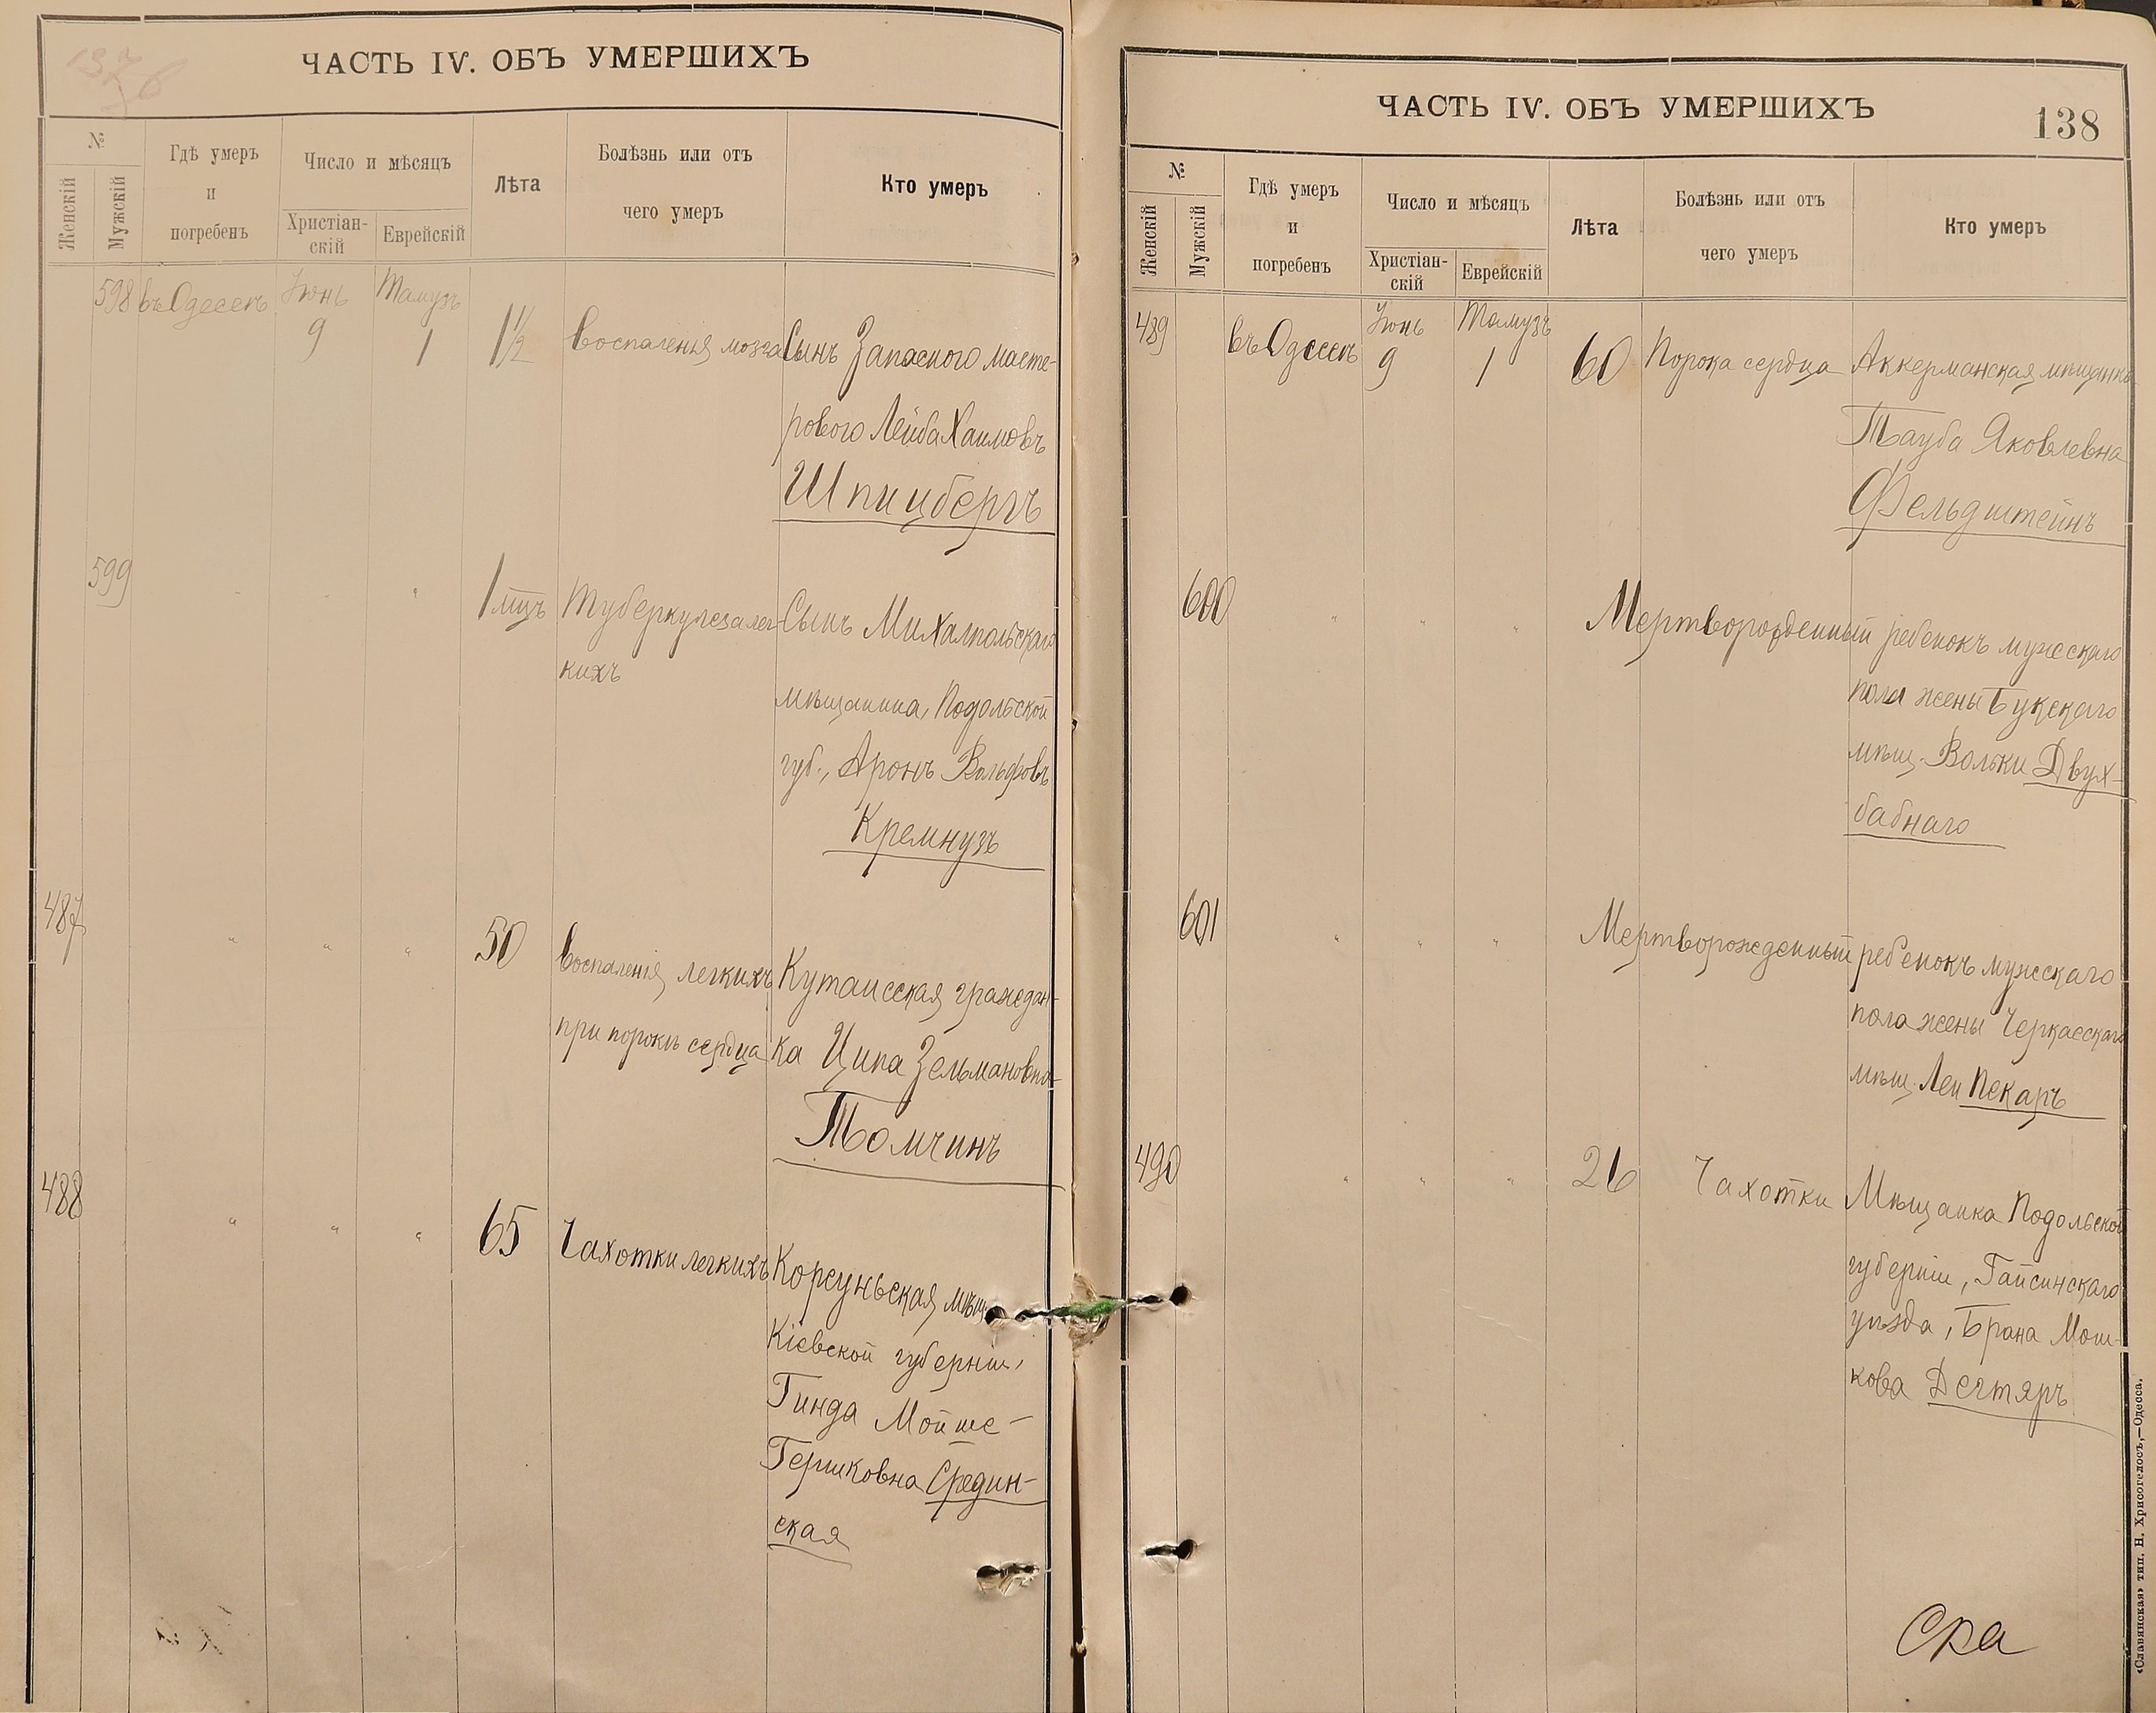 ЧАСТЬ IV. ОБЪ УМЕРШИХЪ
№
Женскій
Мужскій
Гдѣ умеръ
и
погребенъ
Число и мѣсяцъ
Христіан-
скій
Еврейскій
Лѣта
Болѣзнь или отъ
чего умеръ
Кто умеръ
598 въ Одессѣ Іюнь 9 Тамузъ 1 1 1/2 Воспаленія мозга Сынъ Запасного масте-
рового Лейба Хаимовъ
Шпицбергъ
599 " " " 1 мцъ Туберкулеза лег- Сынъ Михалпольскаго
кихъ
мѣщанина, Подольской
губ., Аронъ Вольфовъ
Кремнузъ
487 " " " 50 Воспаленія легкихъ Кутаисская граждан-
при порокѣ сердца ка Ципа Зельмановна
Томчинъ
488 " " " 65 Чахотки легкихъ Корсуньская мѣщ.
Кіевской губерніи,
Гинда Мойше-
Гершковна Средин-
ская
ЧАСТЬ IV. ОБЪ УМЕРШИХЪ
138
№
Женскій
Мужскій
Гдѣ умеръ
и
погребенъ
Число и мѣсяцъ
Христіан-
скій
Еврейскій
Лѣта
Болѣзнь или отъ
чего умеръ
Кто умеръ
489 въ Одессѣ Іюнь 9 Тамузъ 1 60 Порока сердца Аккерманская мѣщанка
Тауба Яковлевна
Фельдштейнъ
600 " " " Мертворожденный ребенокъ мужескаго
пола жены Букскаго
мѣщ. Вольки Двух-
бабнаго
601 " " " Мертворожденный ребенокъ мужескаго
пола жены Черкасскаго
мѣщ. Леи Пекаръ
490 " " " 26 Чахотки Мѣщанка Подольской
губерніи, Гайсинскаго
уѣзда, Брана Мош-
кова Дегтяръ
«Славянская» тип. Н. Хрисогелосъ,—Одесса.